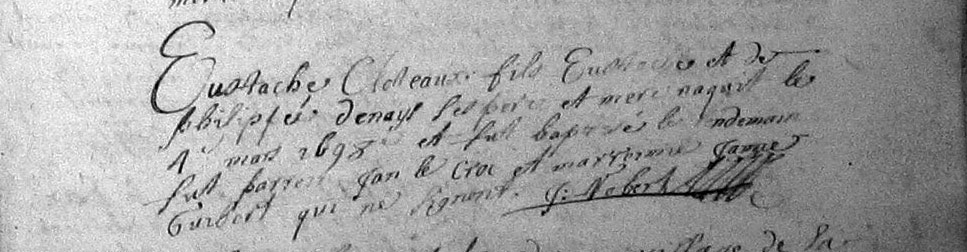 Eustache Closteaux fils Eustache et de
philippes denays ses pere et mere naquit le
4e mars 1698 et fut baptisé le lendemain
fut parrein Jan le Croc et marrienne Janne
Guibert qui ne signent. J: Nobert
village de la